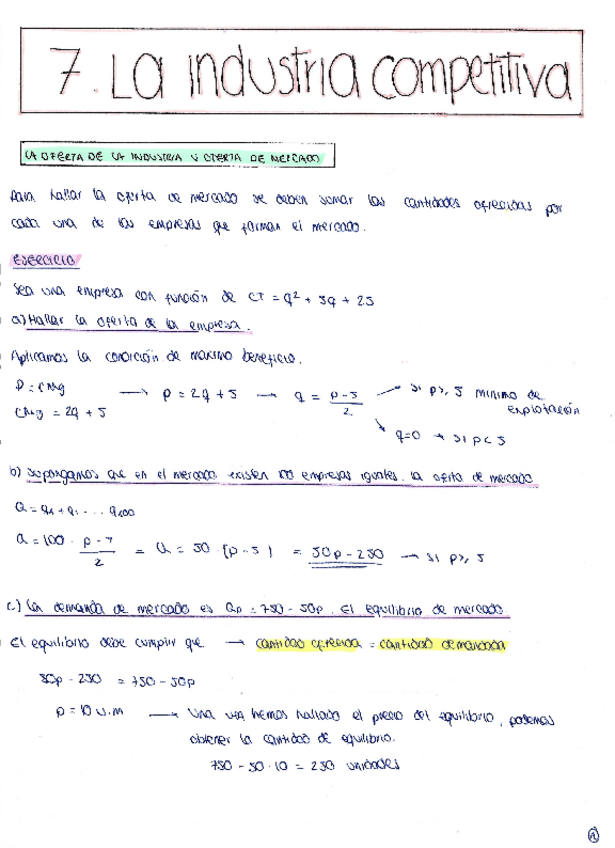 7. La industria competitiva
LA OFERTA DE LA INDUSTRIA Y OFERTA DE MERCADO
Para hallar la oferta de mercado se deben sumar las cantidades ofrecidas por
cada una de las empresas que forman el mercado.
EJERCICIO
Sea una empresa con función de CT = q² + 5q + 25
a) Hallar la oferta de la empresa.
Aplicamos la condición de maximo beneficio.
P = CMg → p = 2q + 5 → q = p-5 / 2 → si p ≥ 5 minimo de explotación
CMg = 2q + 5
q=0 → si p < 5
b) Supongamos que en el mercado existen 100 empresas iguales. La oferta de mercado
Q = q1 + q1 ... q100
Q = 100 · p-5 / 2 = Q = 50 · (p-5) = 50p - 250 → si p ≥ 5
c) La demanda de mercado es QD = 750 - 50p. El equilibrio de mercado
El equilibrio debe cumplir que → cantidad ofrecida = cantidad demandada
50p - 250 = 750 - 50p
p = 10 u.m → Una vez hemos hallado el precio del equilibrio, podemos
obtener la cantidad de equilibrio.
750 - 50 · 10 = 250 unidades